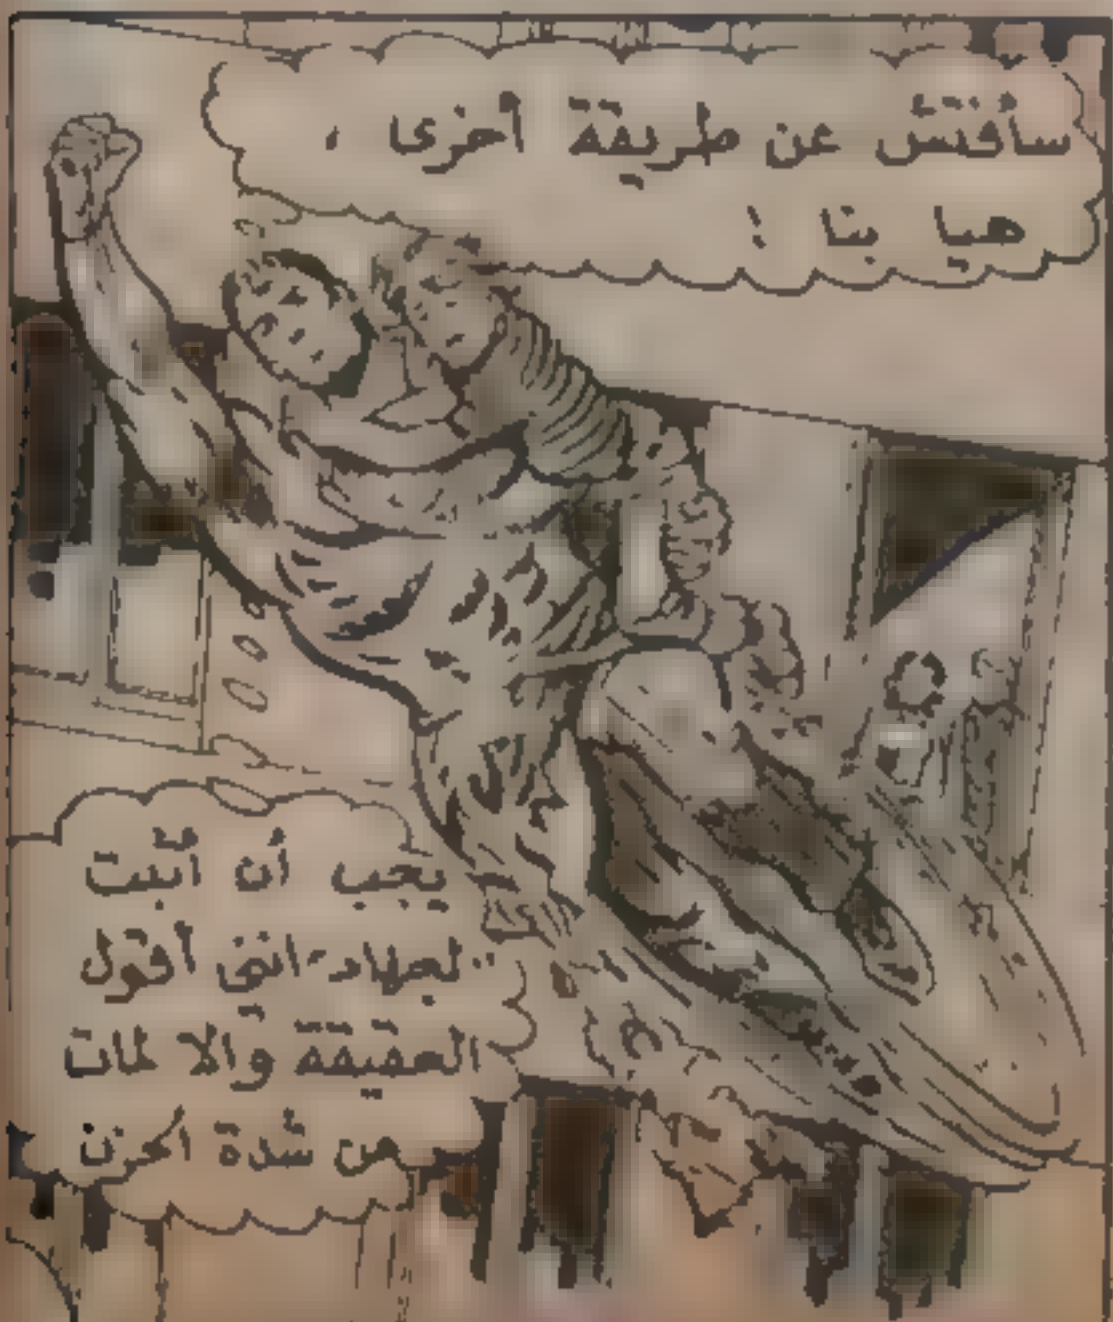 سأفتش عن طريقة أخرى ،
هيا بنا !
يجب أن أثبت
"لجهاد" انني أقول
الحقيقة والا لمات
من شدة الحزن